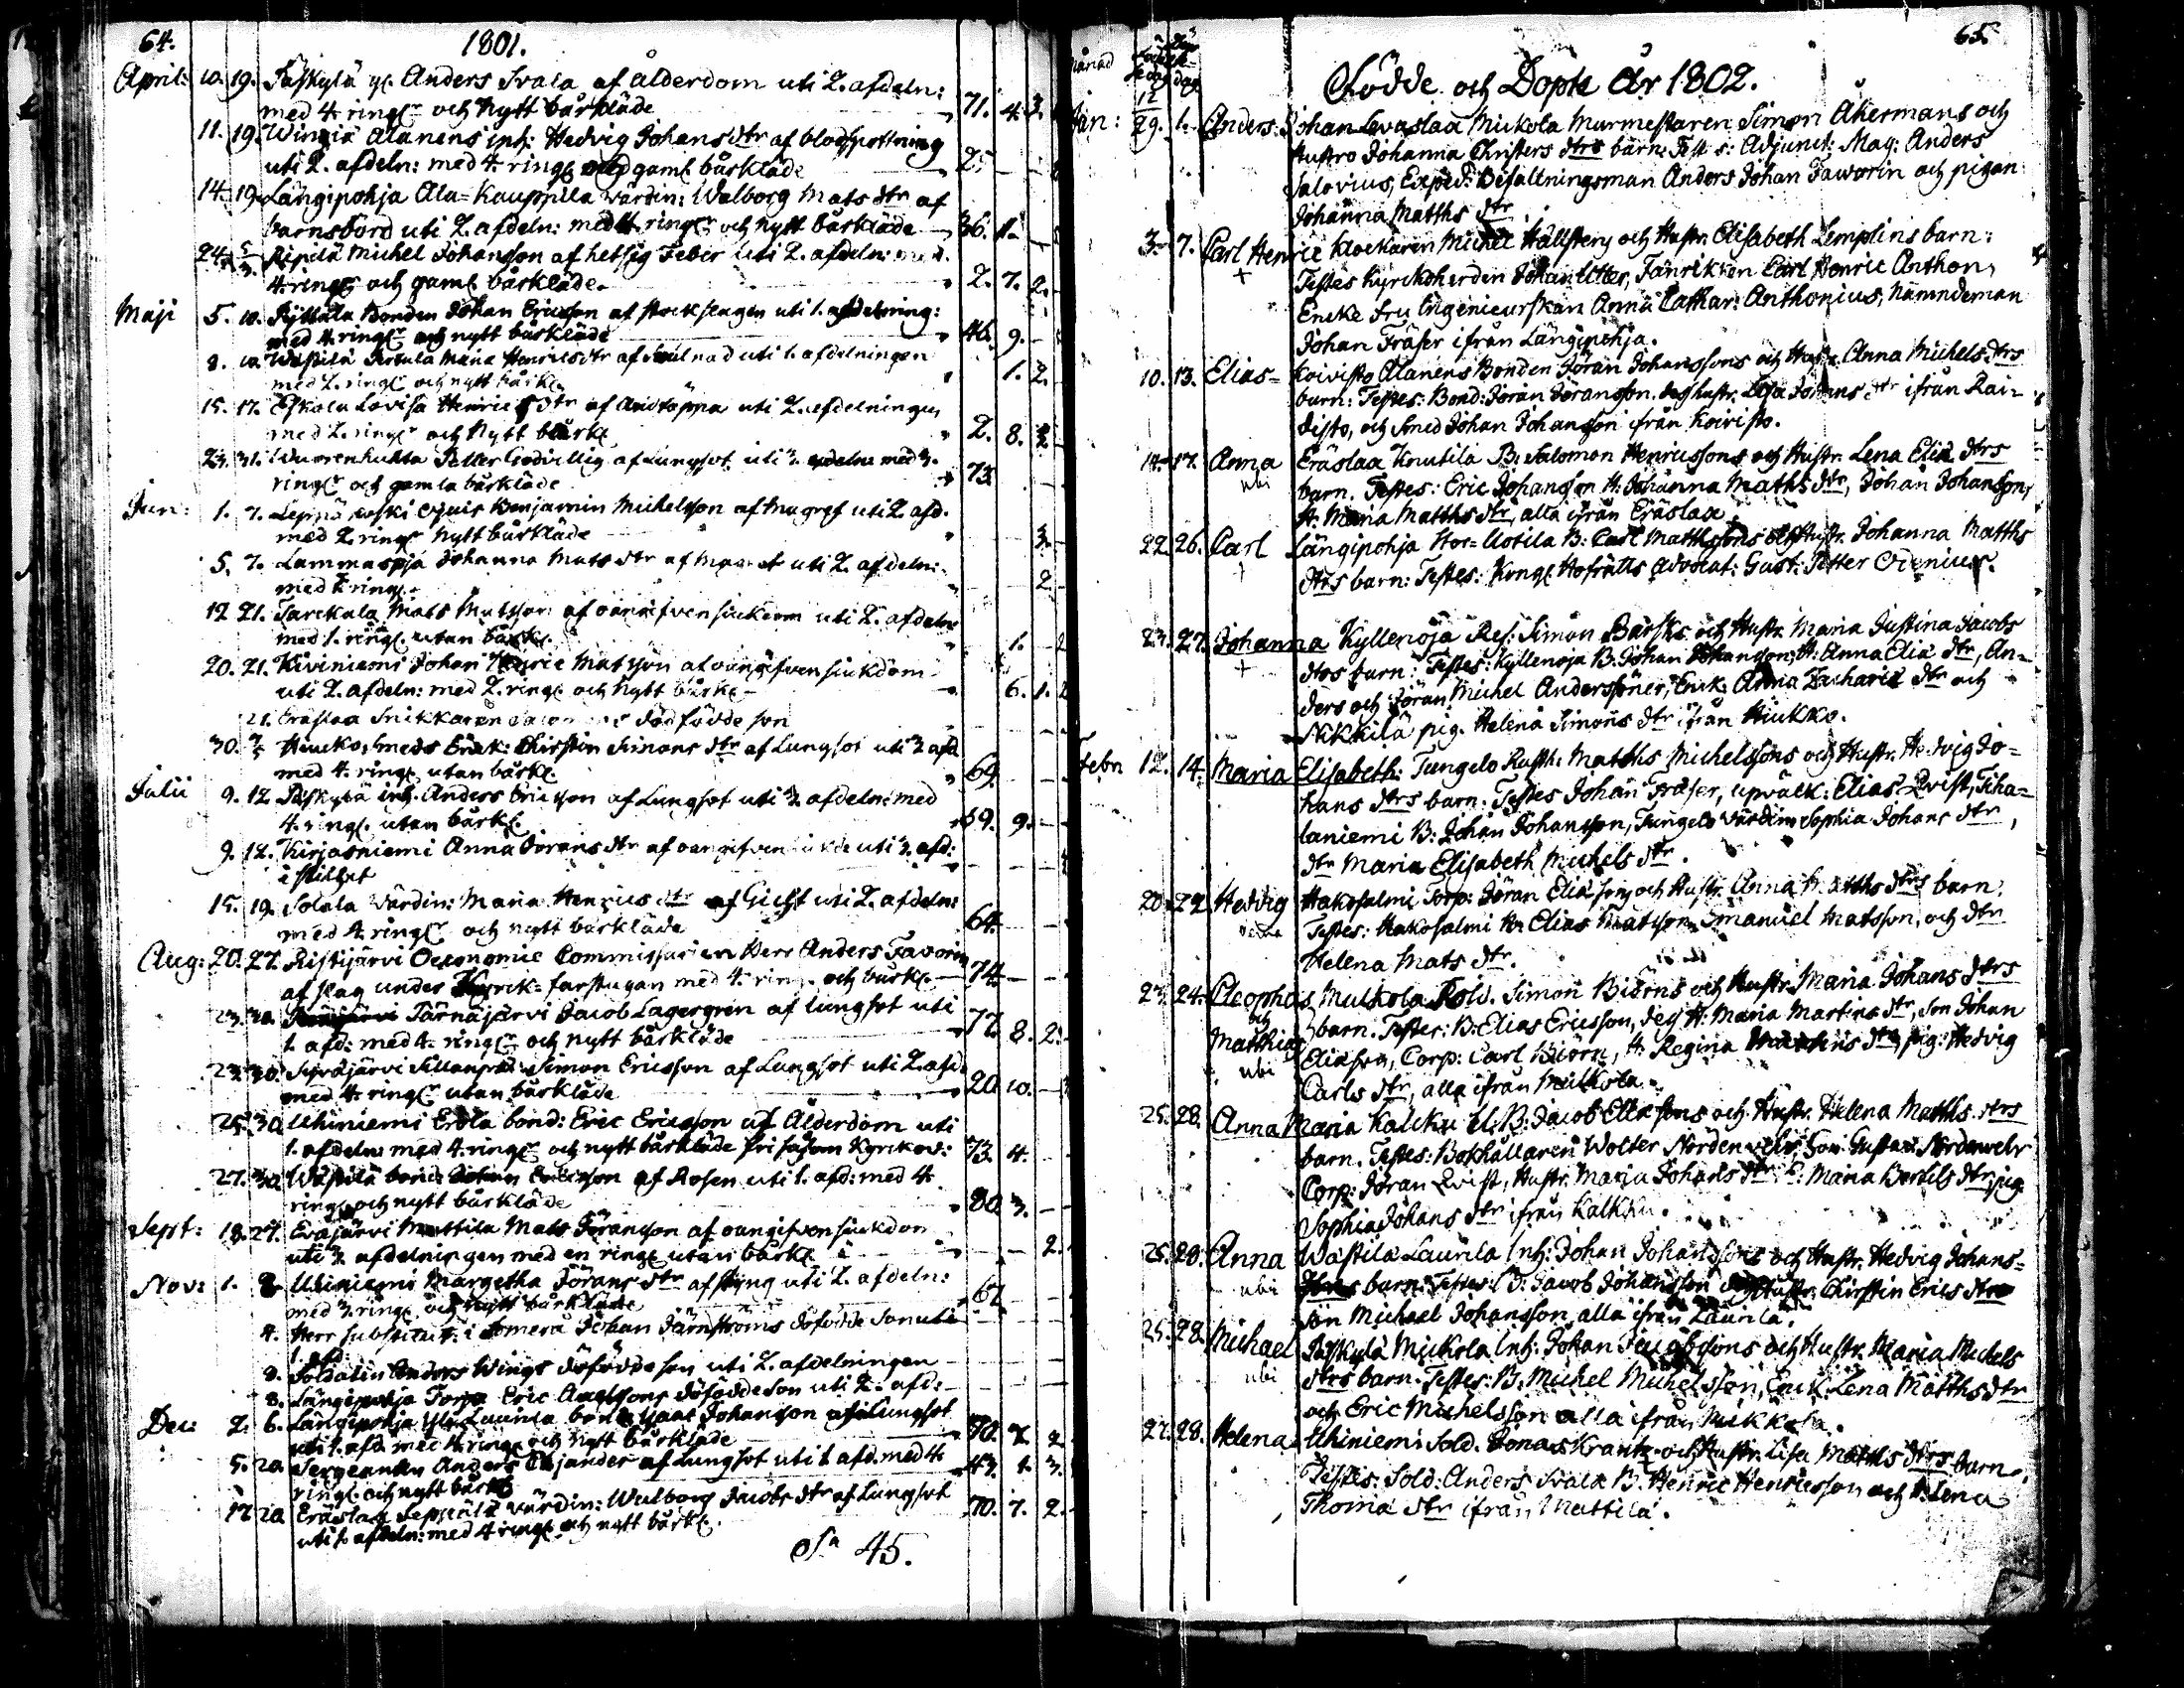 64.
1801.
April: 10. 19. Påskylä gl. Anders Svala af ålderdom uti 2. afdeln:
med 4. ringr och Nytt bårkläde 71. 4. 3.
11. 19. Alanens inh: Hedvig Johans dtr af blodspottning
uti 2. afdeln: med 4. ring med gaml bårkläde 25.
14. 19. Längipohja Ala=Kauppila värdin: Walborg Mats dtr af
barnsbörd uti 2. afdeln: med 4. ringr och nytt bårkläde 36. 11.
24. Ripilä Michel Johansson af hetsig Feber uti 2. afdeln: med
4. ring och gaml bårkläde 2. 7. 2.
Maji 5. 10. Bonden Johan Ericsson af uti 1. afdelning:
med 4. ringr och nytt bårkläde 46. 9.
8. 10. Maria Henrics dtr af uti 1. afdelningen
med 2. ringr och nytt bårkl. 1. 2.
15. 17. Eskola Lovisa Henrics dtr af Andtäppa uti 2. afdelningen
med 2. ringr och Nytt bårkl 2. 8. 2
23. 31. Petter Godvillig af Lungsot uti 3. afdeln: med 3.
ringr och gamla bårkläde 73.
Jun: 1. 7. Benjamin Michelsson af uti 2. afd.
med 2. ringr Nytt bårkläde 3.
5. 7. Lammaspja Johanna Mats dtr af uti 2. afdeln:
med 2. ring. 2
12 21. Mats Matsson af oangifven siukdom uti 2. afdeln:
med 1. ring. utan bårkl. 1. 2
20. 21. Kiviniemi Johan Henric Matsson af oangifven siukdom
uti 2. afdeln: med 2. ring och Nytt bårkl 6. 1. 2
21. Eräslaa Snikkaren dödfödde son
30. Hiucko, smeds Enck: Chirstin Simons dtr af Lungsot uti 3 afd
med 4. ring utan bårkl. 69.
Julii 9. 12. Påskylä inh. Anders Ericsson af Lungsot uti 3 afdeln: med
4. ring. utan bårkl. 59. 9.
9. 12. Kirjasniemi Anna Jörans dtr af oangifven uti 3. afd:
i stillhet
15. 19. Solala Värdin: Maria Henrics dtr af Gicht uti 2. afdeln:
med 4. ringr och nytt bårkläde 64.
Aug: 20. 27. Ristijärvi Oeconomie Commissarien Herr Anders Favorin
af slag under Kyrck=farstugan med 4. ring. och bårkl. 74.
23. 30. Tärnäjärvi Jacob Lagergren af lungsot uti
1. afd: med 4. ringr och nytt bårkläde 77. 8. 2.
23. 30. Simon Ericsson af Lungsot uti 2. afd.
med 4. ringr utan bårkläde 20 10.
25. 30. Uhiniemi Erola bond: Eric Ericsson af Ålderdom uti
1. afdeln: med 4. ringr och nytt bårkläde fri såsom Kyrckov: 73. 4.
27. 30. Wästilä bond: Ericsson af Rosen uti 1. afd: med 4
ring och nytt bårkläde 80 3.
Sept: 18. 27. Eväjärvi Mattila Mats Jöransson af oangifven siukdom
uti 3. afdelningen med en ring utan bårkl 2.
Nov: 1. 8. Uhiniemi Margetha Jörans dtr af styng uti 2. afdeln:
med 3. ring och nytt bårkläde 62.
4. Herr substitut: i Somero Johan Järnströms döfödde Son uti
1. afd
8. Soldaten Anders Wings döfödde son uti 2. afdelningen
8. Längipohja Torp: Eric Axelssons döfödde Son uti 2. afd:
Dec: 2. 6. Längipohja Yli Laurila bond: Isaac Johansson af Lungsot
uti 1. afd med 4. ring och nytt bårkläde 70. 7. 2
5. 20. Sergeanten Anders af Lungsot uti 1 afd. med 4
ring. och nytt bårkl 43. 1. 3.
17 20 Eräslaa Seppälä värdin: Walborg Jacobs dtr af Lungsot
uti 1. afdeln: med 4 ring och nytt bårkl. 70. 7. 2.
Sa 45.
65.
Månad
Födde och Döpte År 1802.
Jan: 29. 1. Anders: Lavaslaa Mickola Murmestaren Simon Åkermans och
Hustro Johanna Christers dtrs barn: Testes: Adjunct: Mag: Anders
Salovius, Exped: Befaltningsman Anders Johan Faworin och pigan
Johanna Matths dtr.
3. 7. Carl Henric Klockaren Michel Hällsteng och Hustr: Elisabeth Templins barn:
+ Testes Kyrckoherden Johan Utter, Fänriken Carl Henric Anthon,
Encke Fru Ingenieurskan Anna Cathar: Anthonius, Nämndeman
Johan Fräser ifrån Längipohja.
10. 13. Elias= Koivisto Alanens Bonden Jöran Johanssons och Hustr: Anna Michels dtrs
barn: Testes: Bond: Jöran Jöransson, des hustr. Lisa Johans dtr ifrån Rai-
disto, och Smed Johan Johansson ifrån Koivisto.
14. 17. Anna Eräslaa Knutila B: Salomon Henricssons och Hustr. Lena Eliæ dtrs
ubi barn. Testes: Eric Johansson H: Johanna Matths dtr, Johan Johansson,
H: Maria Matths dtr, alla ifrån Eräslaa.
22 26. Carl Längipohja Iso=Uotila B: Carl Matthssons och Hustr. Johanna Matths
+ dtrs barn: Testes: Kongl Hofrätts Advocat: Gust: Petter Odenius.
23. 27. Johanna Kyllenoja Ref: Simon Bärsks och Hustr. Maria Justina Jacobs
+ dtrs barn: Testes: Kyllenoja B: Johan Johansson, H: Anna Eliæ dtr, An-
ders och Jöran Michel Anderssöner, Enck: Anna Zachariæ dtr och
Nikkilä pig. Helena Simons dtr ifrån Hiukko.
Febr. 12. 14. Maria Elisabeth: Tungelo Rusth: Matths Michelssons och Hustr. Hedvig Jo=
hans dtrs barn: Testes Johan Fräser, upvakt: Elias Qvist, Tiha=
laniemi B: Johan Johansson, Tungelo Värdin: Sophia Johans dtr,
dtr Maria Elisabeth Michels dtr.
20. 22 Hedvig Hakosalmi Torp: Jöran Eliæ sons och Hustr. Anna Matths dtrs barn.
Testes: Hakosalmi Elias Matsson, Emanuel Matsson, och dtr
Helena Mats dtr.
23. 24. Cleophas Mulkola Sold. Simon Biörns och Hustr. Maria Johans dtrs
och barn. Testes: B: Elias Ericsson, des H: Maria Martins dtr, Son Johan
Matthias Eliæson, Corp: Carl Biörn, H: Regina dtr, pig: Hedvig
ubi Carls dtr, alla ifrån Mulkola.
25. 28. Anna Maria Kalcku B: Jacob Eliæ sons och Hustr. Helena Matths dtrs
barn. Testes: Bokhållaren Wolter Nordenwehr, Gustav Nordenwehr
Corp: Jöran Qvist, Hustr. Maria Johans dtr Maria Bertils dtr, pig.
Sophia Johans dtr ifrån Kalkku.
25. 28. Anna Wästilä Laurila Inh: Johan Johanssons och Hustr. Hedvig Johans=
ubi barn: Testes: B: Jacob Johansson des Hustr. Chirstin Erics dtr
Son Michael Johansson, alla ifrån Laurila.
25. 28. Michael Påskylä Mickola Inh: Johan och Hustr. Maria Michels
ubi dtrs barn. Testes: B: Michel Michelsson, Enck: Lena Matths dtr
och Eric Michelsson alla ifrån Mikkola.
27. 28. Helena Uhiniemi Sold. Jonas Krantz och Hustr. Lisa Matths dtrs barn.
Testes: Sold: Anders Svala B: Henric Henricsson och H: Lena
Thomæ dtr ifrån Mattila.